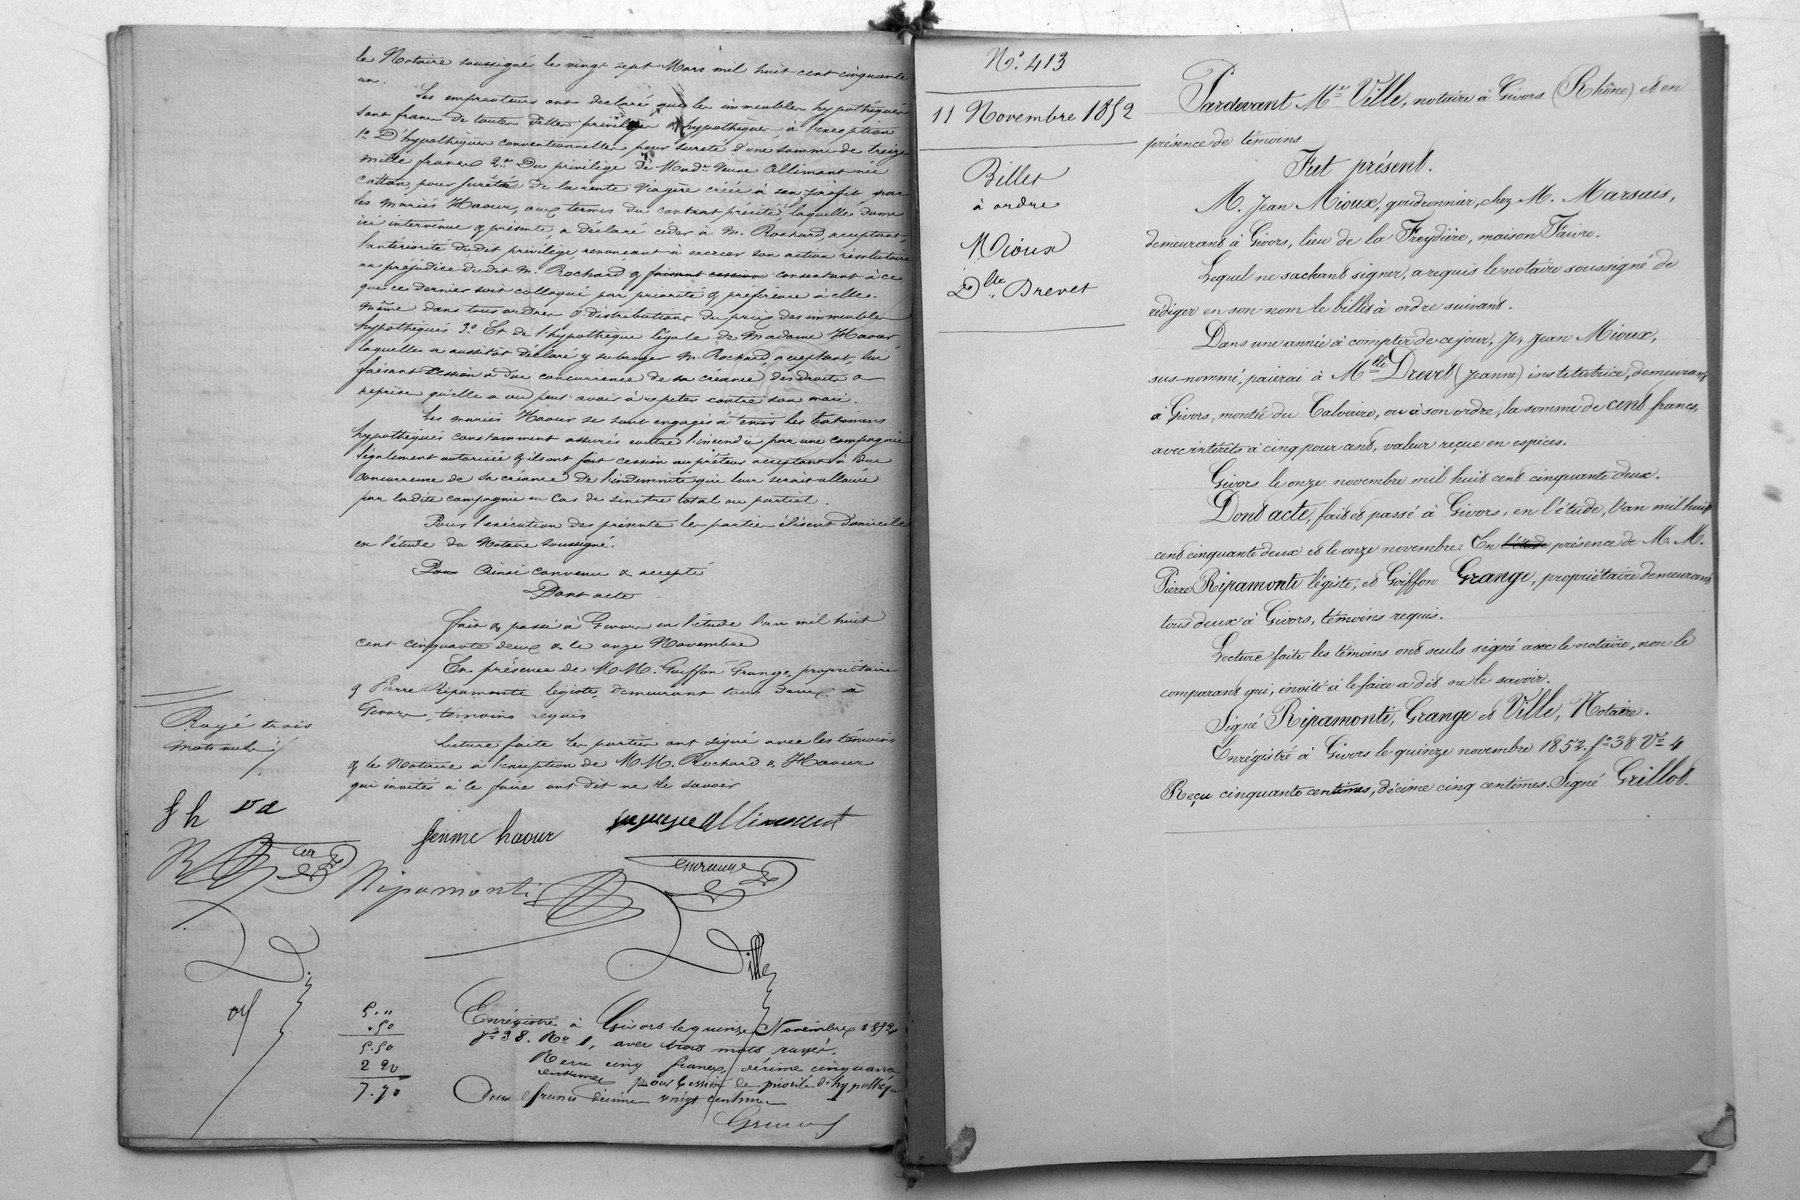 le Notaire soussigné le vingt sept Mars mil huit cent cinquante
un.
Les emprunteurs ont déclaré que les immeubles hypothéqués
sont francs de toutes dettes privilèges & hypothèques, à l'exception
1º D'hypothèques conventionnelles pour sureté d'une somme de treize
mille francs 2º Du privilège de Mad. Veuve Allimant née
pour sureté de la rente Viagère créée à son profit, par
les mariés Haour, aux termes du contrat précité, laquelle dame
ici intervenue & présente, a déclaré céder à M. Rochard, acceptant,
l'antériorité dudit privilège renonçant à exercer son action résolutoire
au préjudice dudit M. Rochard & faisant cession consentant à ce
que ce dernier soit colloqué par priorité & préférence à elle-
même dans tous ordres & distributions du prix des immeubles
hypothéqués 3º Et de l'hypothèque légale de Madame Haour
laquelle a aussitôt déclaré y subroger M. Rochard, acceptant, lui
faisant cession à due concurrence de sa créance, des droits &
reprises qu'elle a ou peut avoir à répéter contre son mari.
Les mariés Haour se sont engagés à tenir les bâtiments
hypothéqués constamment assurés contre l'incendie par une compagnie
légalement autorisée & ils ont fait cession au prêteur acceptant à due
concurrence de sa créance de l'indemnité qui leur serait allouée
par ladite compagnie en cas de sinistre total ou partiel.
Pour l'exécution des présentes les parties élisent domicile
en l'étude du Notaire soussigné.
Ainsi convenu & accepté
Dont acte
fait & passé à Givors en l'étude l'an mil huit
cent cinquante deux & le onze Novembre
En présence de M.M. Goiffon Grange, propriétaire
& Pierre Ripamonti légiste, demeurant tous deux à
Givors, témoins requis
Lecture faite les parties ont signé avec les témoins
& le Notaire à l'exception de M.M. Rochard & Haour
qui invités à le faire ont dit ne le savoir
Rayé trois
mots nuls
f h va
femme haour
allimant
Ripamonti
Grange
Ville
5.,,
.50
5.50
2 20
7.70
Enrégistré à Givors le quinze Novembre 1852
fº 38. Rº 1, avec trois mots rayés,
Reçu cinq francs, décime cinquante
centimes pour Cession de priorité d'hypothèque
Deux francs décime vingt centimes
Nº 413
11 Novembre 1852
Billet
à ordre
Mioux
à
Dlle Drevet
Pardevant Me Ville, notaire à Givors (Rhône) et en
présence de témoins
Fut présent.
M. Jean Mioux, goudronnier, chez M. Marsais,
demeurant à Givors, lieu de la Freydière, maison Faure.
Lequel ne sachant signer, a requis le notaire soussigné de
rédiger en son nom le billet à ordre suivant.
Dans une année à compter de ce jour, Je, Jean Mioux,
sus-nommé, paierai à Mlle Drevet (Jeanne) institutrice, demeurant
à Givors, montée du Calvaire, ou à son ordre, la somme de cent francs,
avec intérêts à cinq pour cent, valeur reçue en espèces.
Givors le onze novembre mil huit cent cinquante deux.
Dont acte, fait et passé à Givors, en l'étude, l'an mil huit
cent cinquante deux et le onze novembre. En l'étude présence de M. M.
Pierre Ripamonti légiste, et Goiffon Grange, propriétaire demeurant
tous deux à Givors, témoins requis.
Lecture faite les témoins ont seuls signé avec le notaire, non le
comparant qui, invité à le faire a dit ne le savoir.
Signé Ripamonti, Grange et Ville, Notaire.
Enrégistré à Givors le quinze novembre 1852. fº 38 Vº 4
Reçu cinquante centimes, décime cinq centimes. Signé Grillot.